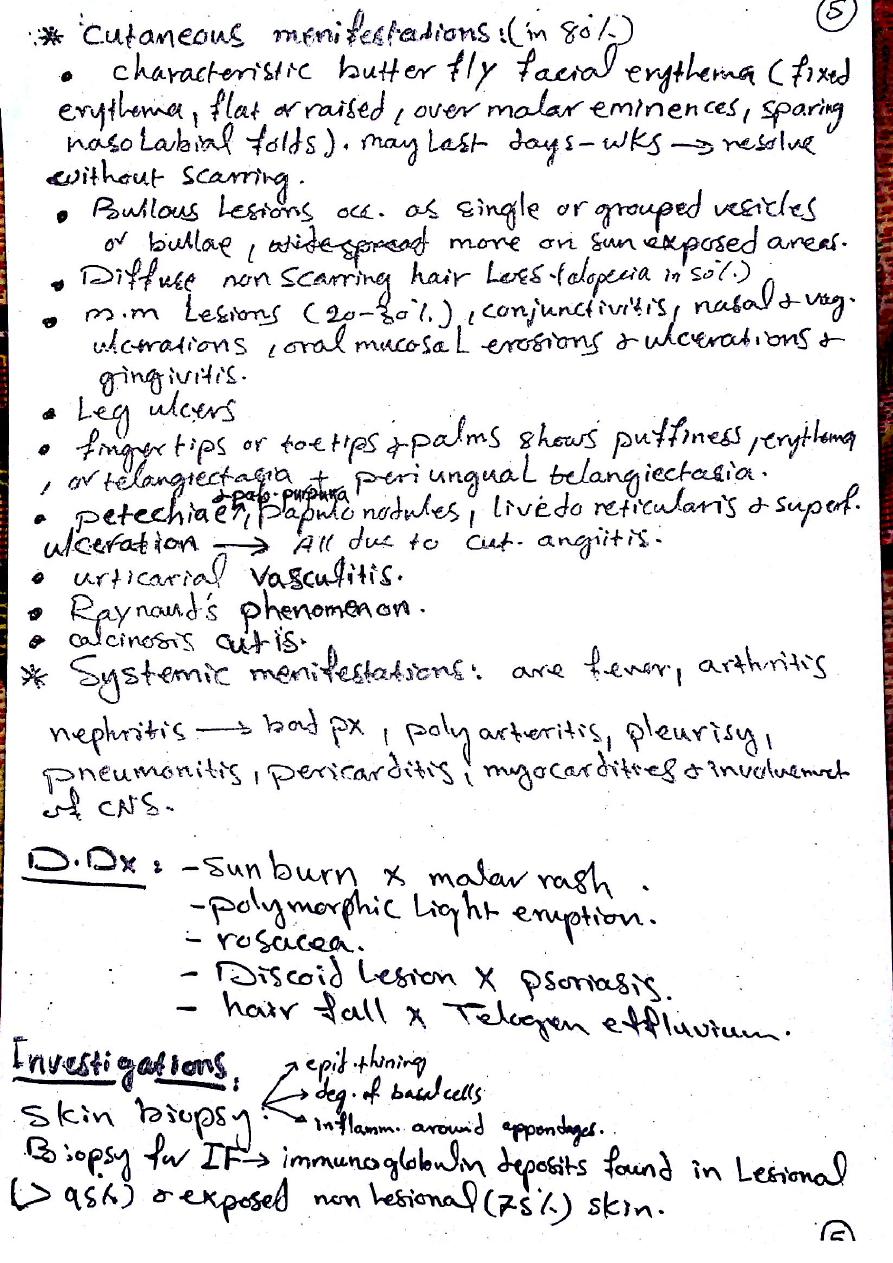 5
* Cutaneous menifestations: (in 80%)
• characteristic butter fly facial erythema (fixed
erythema, flat or raised, over malar eminences, sparing
naso Labial folds). may Last days-wks → resolve
without scarring.
• Bullous Lesions occ. as single or grouped vesicles
or bullae, widespread more on sun exposed areas.
• Diffuse non scarring hair Loss (alopecia in 50%)
• m.m Lesions (20-30%), conjunctivitis, nasal & vag.
ulcerations, oral mucosal erosions & ulcerations &
gingivitis.
• Leg ulcers
• finger tips or toe tips & palms shows puffiness, erythema
, or telangiectasia + peri ungual telangiectasia.
& palp. purpura
• petechiae, papulo nodules, livedo reticularis & superf.
ulceration → All due to cut. angiitis.
• urticarial vasculitis.
• Raynaud's phenomenon.
• calcinosis cutis.
* Systemic menifestations: are fever, arthritis
nephritis → bad px, poly arteritis, pleurisy,
pneumonitis, pericarditis, myocardities & involvement
of CNS.
D.Dx: - Sun burn x malar rash.
- polymorphic Light eruption.
- rosacea.
- Discoid Lesion x psoriasis.
- hair fall x Telogen effluvium.
Investigations:
→ epid. thining
→ deg. of basal cells
Skin biopsy:
→ inflamm. around appendages.
Biopsy for IF → immunoglobulin deposits found in Lesional
(> 95%) & exposed non Lesional (75%) skin.
5